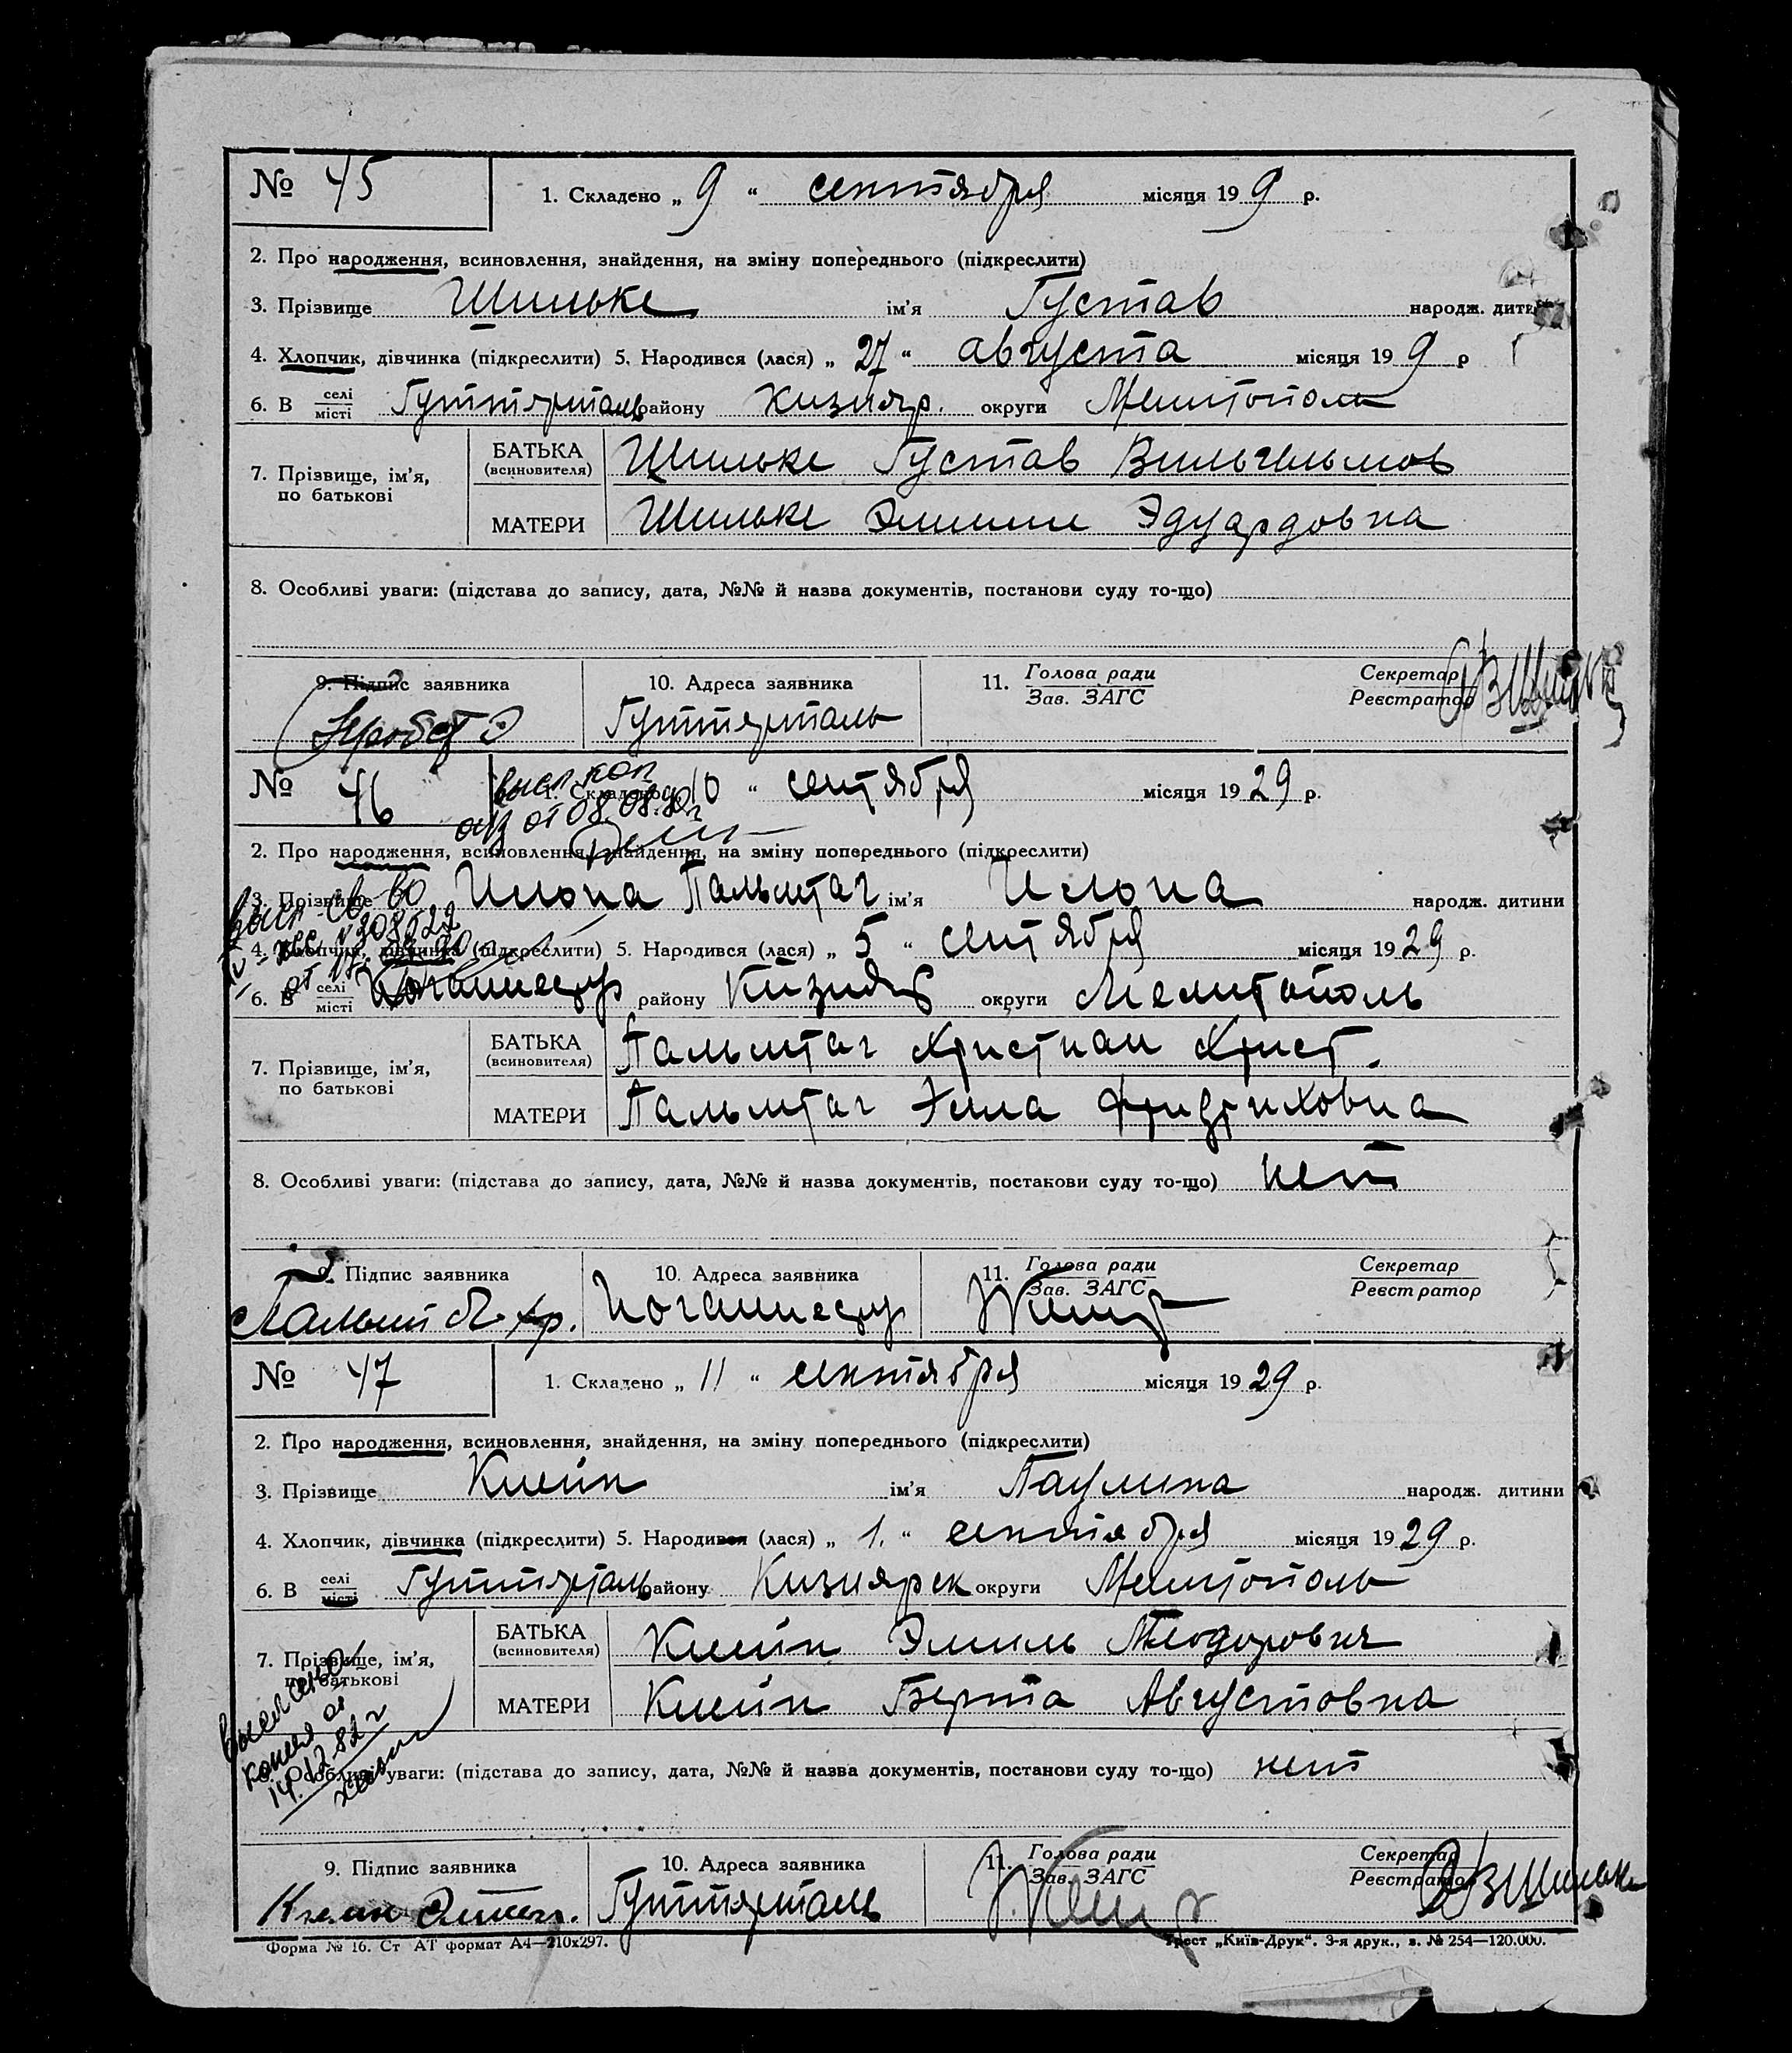 № 45 1. Складено „ 9 “ сентября місяця 19 9 р.
2. Про народження, всиновлення, знайдення, на зміну попереднього (підкреслити)
3. Прізвище Шильке ім'я Густав народж. дити
4. Хлопчик, дівчинка (підкреслити) 5. Народився (лася) „ 27 “ августа місяця 19 9 р
6. В селі/місті Гуттерталь району Кизияр. округи Мелитополь
7. Прізвище, ім'я, по батькові
БАТЬКА (всиновителя) Шильке Густав Вильгельмов
МАТЕРИ Шильке Эмилие Эдуардовна
8. Особливі уваги: (підстава до запису, дата, №№ й назва документів, постанови суду то-що)
9. Підпис заявника 10. Адреса заявника 11. Голова ради/Зав. ЗАГС Секретар/Реєстратор
Гуттерталь ВШильке
№ 46 1. Складено „ 10 “ сентября місяця 19 29 р.
выс. коп
от 08.08.
2. Про народження, всиновлення, знайдення, на зміну попереднього (підкреслити)
3. Прізвище Илона Пальмтаг ім'я Илона народж. дитини
св-во
308522
4. Хлопчик, дівчинка (підкреслити) 5. Народився (лася) „ 5 “ сентября місяця 19 29 р.
6. В селі/місті Иоганнесру району Кизияр округи Мелитополь
7. Прізвище, ім'я, по батькові
БАТЬКА (всиновителя) Пальмтаг Христиан Христ.
МАТЕРИ Пальмтаг Эмма Фридриховна
8. Особливі уваги: (підстава до запису, дата, №№ й назва документів, постакови суду то-що) нет
9. Підпис заявника 10. Адреса заявника 11. Голова ради/Зав. ЗАГС Секретар/Реєстратор
Хр. Иоганнесру
№ 47 1. Складено „ 11 “ сентября місяця 19 29 р.
2. Про народження, всиновлення, знайдення, на зміну попереднього (підкреслити)
3. Прізвище Клейн ім'я Паулина народж. дитини
4. Хлопчик, дівчинка (підкреслити) 5. Народився (лася) „ 1. “ сентября місяця 19 29 р.
6. В селі/місті Гуттерталь району Кизиярск округи Мелитополь
7. Прізвище, ім'я, по батькові
БАТЬКА (всиновителя) Клейн Эмиль Теодорович
МАТЕРИ Клейн Берта Августовна
выслана
копия
14.12.82 г
8. Особливі уваги: (підстава до запису, дата, №№ й назва документів, постанови суду то-що) нет
9. Підпис заявника 10. Адреса заявника 11. Голова ради/Зав. ЗАГС Секретар/Реєстратор
Клейн Гуттерталь ВШильке
Форма № 16. Ст АТ формат А4—210х297. Трест „Київ-Друк“. 3-я друк., з. № 254—120.000.